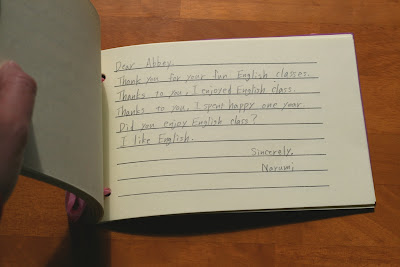 Dear Abbey,
Thank you for your fun English classes.
Thanks to you, I enjoyed English class.
Thanks to you, I spent happy one year.
Did you enjoy English class?
I like English.
Sincerely,
Narumi